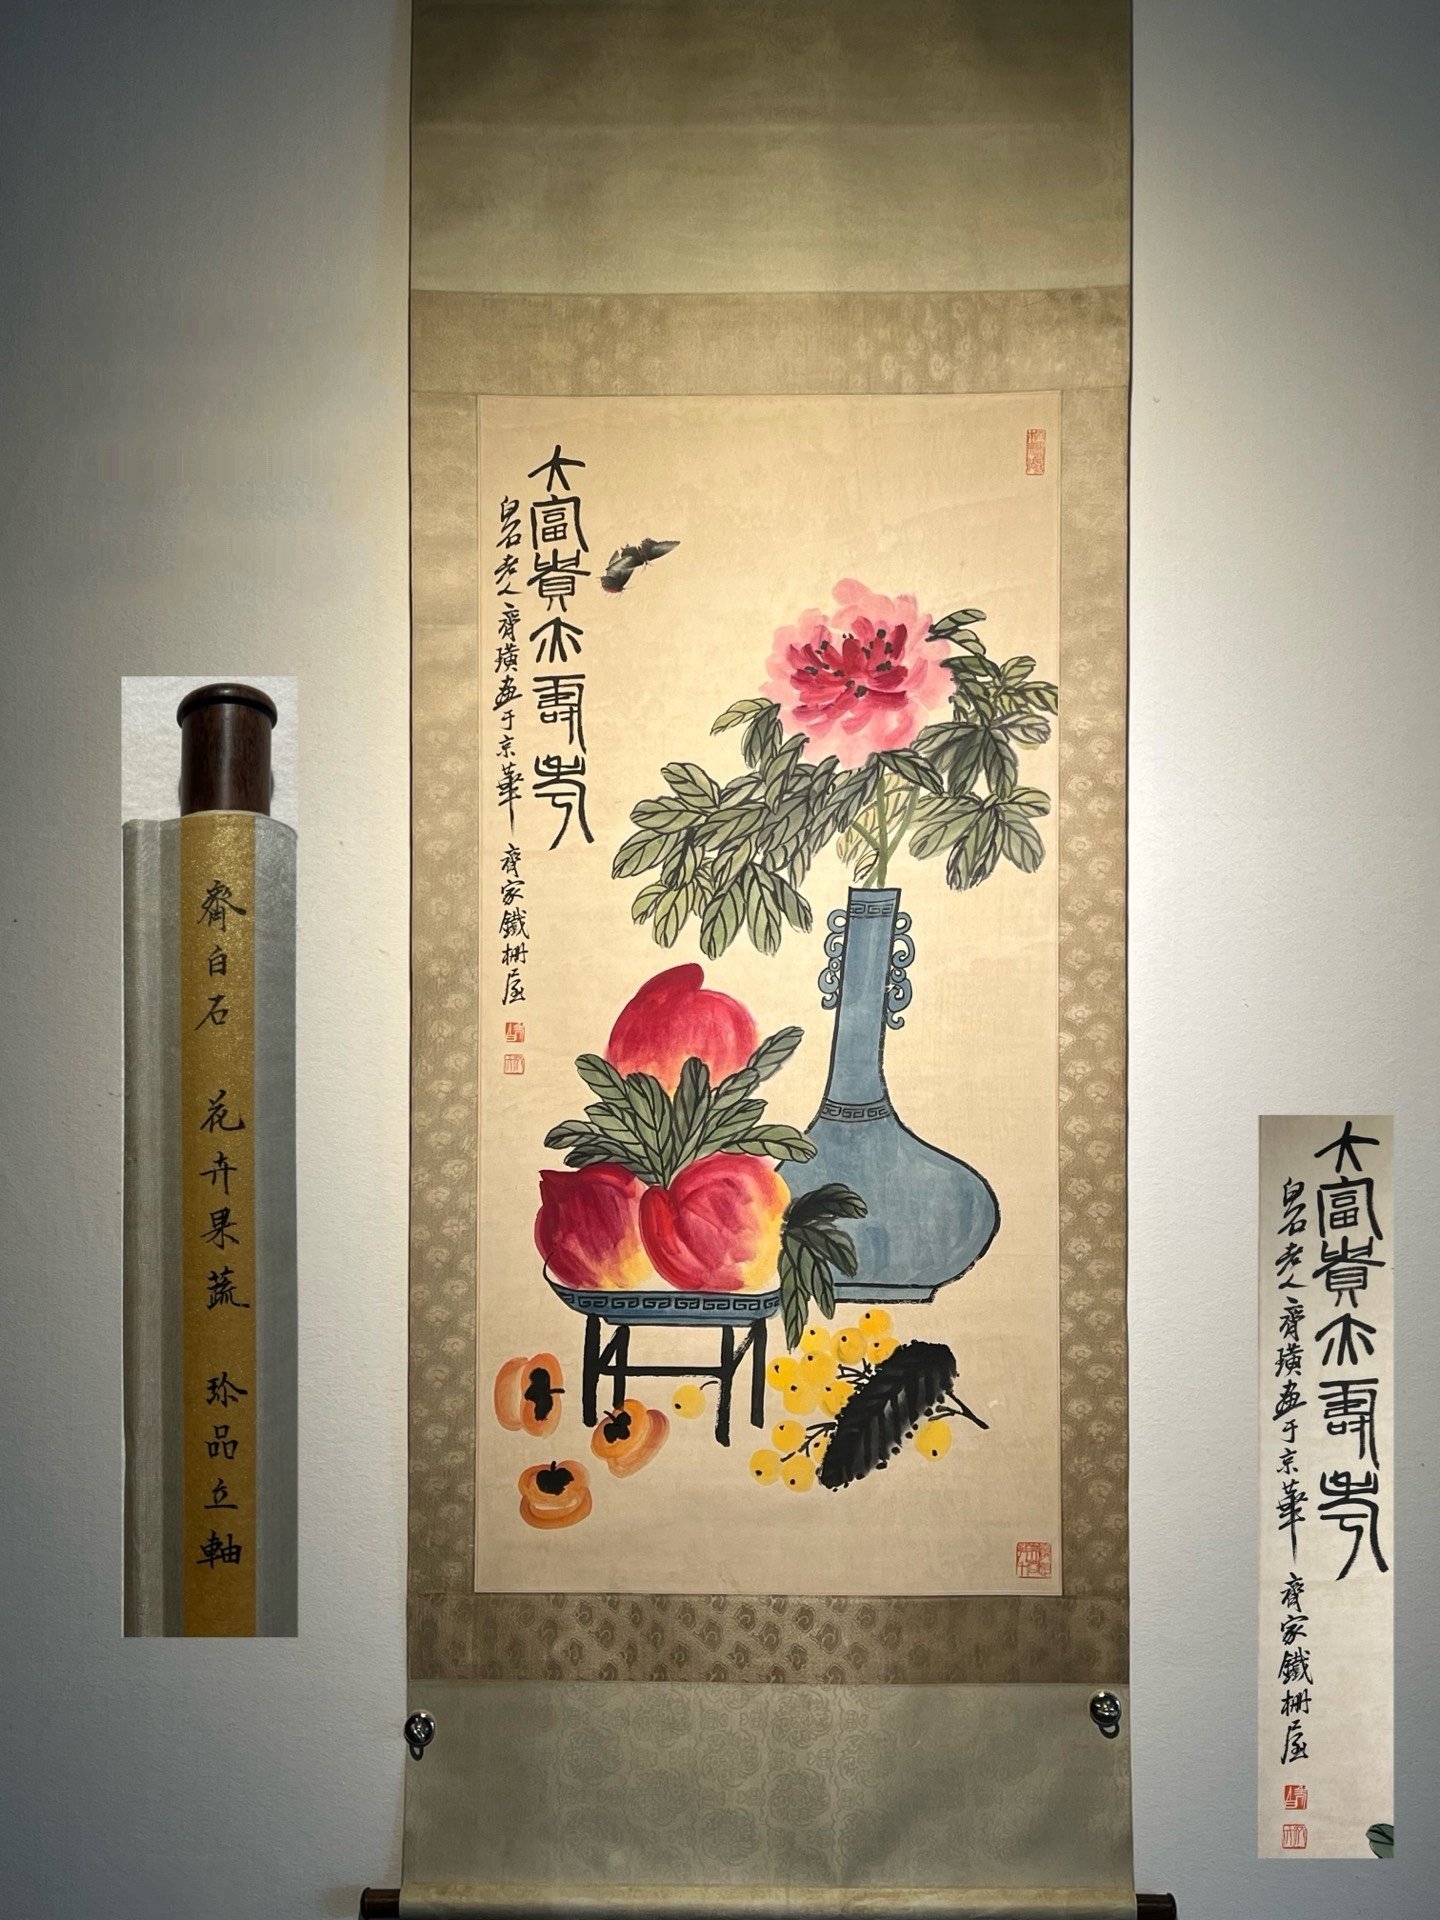 大富貴亦壽考
白石老人齊璜畫于京華 齊家鐵柵屋
齊白石 花卉果蔬 珍品立軸
大富貴亦壽考
白石老人齊璜畫于京華 齊家鐵柵屋